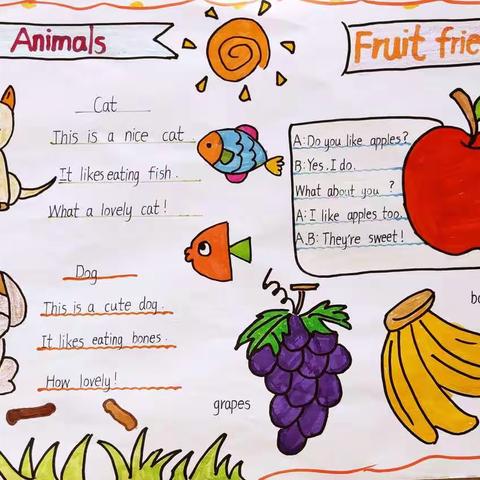 Animals
Cat
This is a nice cat
It likes eating fish.
What a lovely cat!
Dog
This is a cute dog.
It likes eating bones.
How lovely!
grapes
Fruit frie
A: Do you like apples?
B: Yes. I do.
What about you ?
A: I like apples too.
A.B: They're sweet!